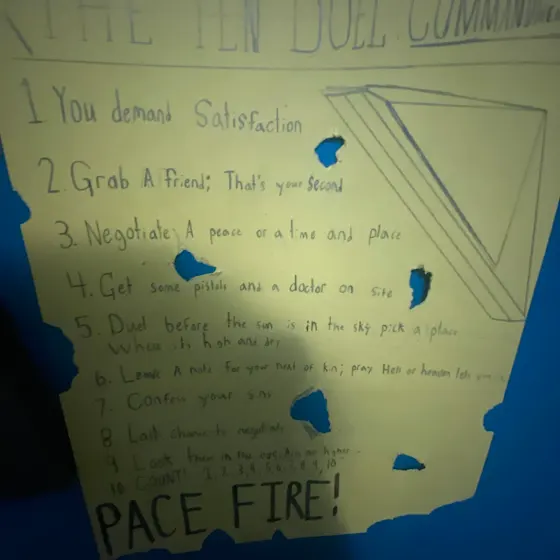 THE TEN DUEL COMMANDMENTS
1 You demand Satisfaction
2. Grab A friend; That's your Second
3. Negotiate A peace or a time and place
4. Get some pistols and a doctor on site
5. Duel before the sun is in the sky pick a place
When its high and dry
6. Leave A note for your next of kin; pray Hell or heaven lets
7. Confess your sins
8 Last chance to negotiate
9 Look them in the eye, Aim no higher
10 COUNT! 1, 2, 3, 4, 5, 6, 7, 8, 9, 10
PACE FIRE!